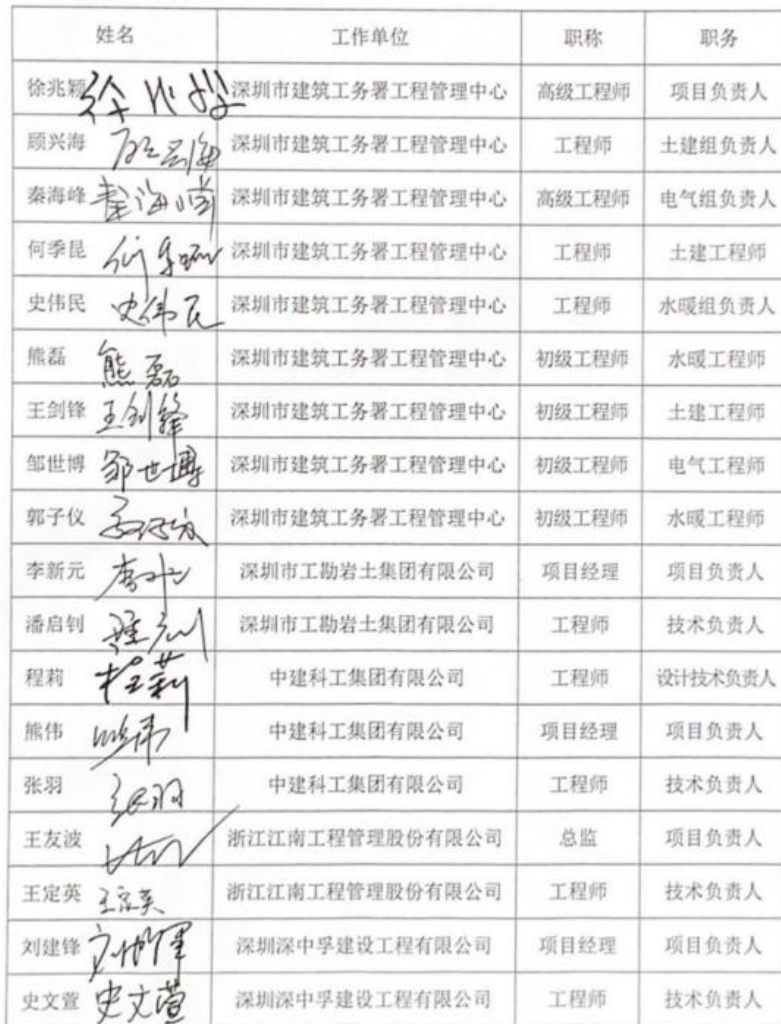 姓名 工作单位 职称 职务
徐兆颖 徐兆颖 深圳市建筑工务署工程管理中心 高级工程师 项目负责人
顾兴海 顾兴海 深圳市建筑工务署工程管理中心 工程师 土建组负责人
秦海峰 秦海峰 深圳市建筑工务署工程管理中心 高级工程师 电气组负责人
何季昆 何季昆 深圳市建筑工务署工程管理中心 工程师 土建工程师
史伟民 史伟民 深圳市建筑工务署工程管理中心 工程师 水暖组负责人
熊磊 熊磊 深圳市建筑工务署工程管理中心 初级工程师 水暖工程师
王剑锋 王剑锋 深圳市建筑工务署工程管理中心 初级工程师 土建工程师
邹世博 邹世博 深圳市建筑工务署工程管理中心 初级工程师 电气工程师
郭子仪 深圳市建筑工务署工程管理中心 初级工程师 水暖工程师
李新元 深圳市工勘岩土集团有限公司 项目经理 项目负责人
潘启钊 深圳市工勘岩土集团有限公司 工程师 技术负责人
程莉 程莉 中建科工集团有限公司 工程师 设计技术负责人
熊伟 熊伟 中建科工集团有限公司 项目经理 项目负责人
张羽 张羽 中建科工集团有限公司 工程师 技术负责人
王友波 浙江江南工程管理股份有限公司 总监 项目负责人
王定英 王定英 浙江江南工程管理股份有限公司 工程师 技术负责人
刘建锋 深圳深中孚建设工程有限公司 项目经理 项目负责人
史文萱 史文萱 深圳深中孚建设工程有限公司 工程师 技术负责人